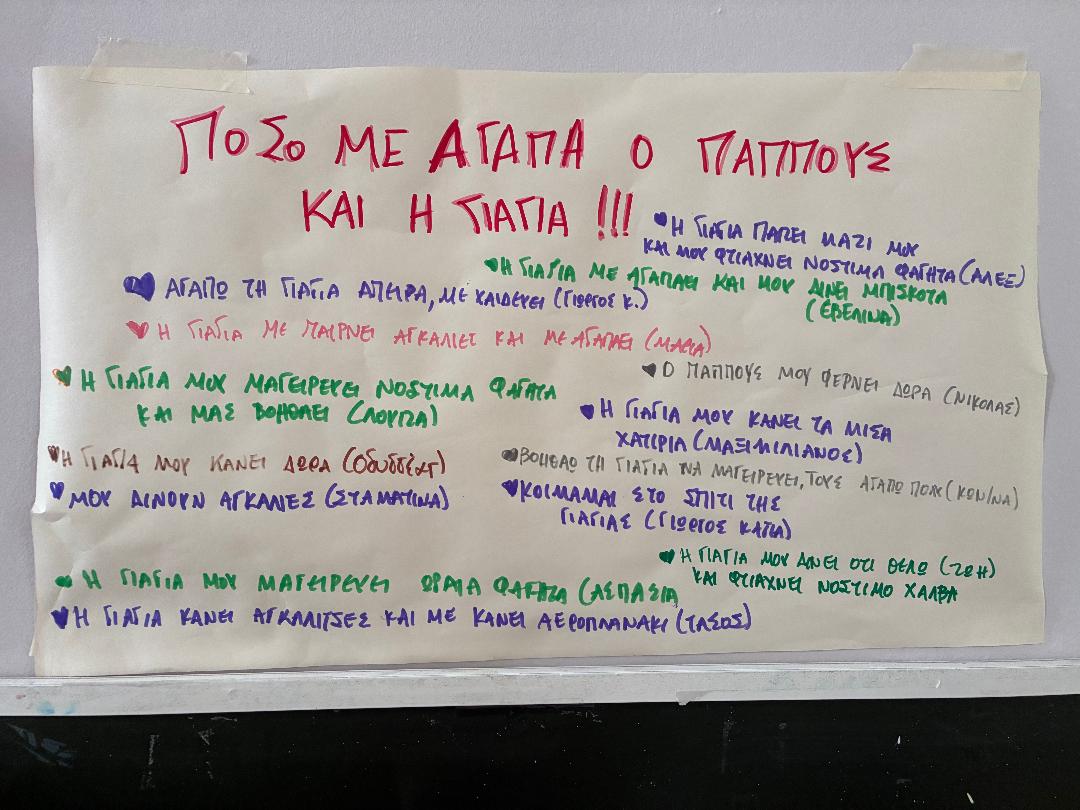 ΠΟΣΟ ΜΕ ΑΓΑΠΑ Ο ΠΑΠΠΟΥΣ
ΚΑΙ Η ΓΙΑΓΙΑ !!!
Η ΓΙΑΓΙΑ ΠΑΙΖΕΙ ΜΑΖΙ ΜΟΥ
ΚΑΙ ΜΟΥ ΦΤΙΑΧΝΕΙ ΝΟΣΤΙΜΑ ΦΑΓΗΤΑ (ΑΛΕΞ)
Η ΓΙΑΓΙΑ ΜΕ ΑΓΑΠΑΕΙ ΚΑΙ ΜΟΥ ΔΙΝΕΙ ΜΠΙΣΚΟΤΑ
(ΕΒΕΛΙΝΑ)
ΑΓΑΠΩ ΤΗ ΓΙΑΓΙΑ ΑΠΕΙΡΑ, ΜΕ ΧΑΙΔΕΥΕΙ (ΓΙΩΡΓΟΣ Κ.)
Η ΓΙΑΓΙΑ ΜΕ ΠΑΙΡΝΕΙ ΑΓΚΑΛΙΕΣ ΚΑΙ ΜΕ ΑΓΑΠΑΕΙ (ΜΑΡΙΑ)
Ο ΠΑΠΠΟΥΣ ΜΟΥ ΦΕΡΝΕΙ ΔΩΡΑ (ΝΙΚΟΛΑΣ)
Η ΓΙΑΓΙΑ ΜΟΥ ΜΑΓΕΙΡΕΥΕΙ ΝΟΣΤΙΜΑ ΦΑΓΗΤΑ
ΚΑΙ ΜΑΣ ΒΟΗΘΑΕΙ (ΛΟΥΙΖΑ)
Η ΓΙΑΓΙΑ ΜΟΥ ΚΑΝΕΙ ΤΑ ΜΙΣΑ
ΧΑΤΙΡΙΑ (ΜΑΞΙΜΙΛΙΑΝΟΣ)
Η ΓΙΑΓΙΑ ΜΟΥ ΚΑΝΕΙ ΔΩΡΑ (Οδυσσέας)
ΒΟΗΘΑΩ ΤΗ ΓΙΑΓΙΑ ΝΑ ΜΑΓΕΙΡΕΥΕΙ, ΤΟΥΣ ΑΓΑΠΩ ΠΟΛΥ (ΚΩΝ/ΝΑ)
ΜΟΥ ΔΙΝΟΥΝ ΑΓΚΑΛΙΕΣ (ΣΤΑΜΑΤΙΝΑ)
ΚΟΙΜΑΜΑΙ ΣΤΟ ΣΠΙΤΙ ΤΗΣ
ΓΙΑΓΙΑΣ (ΓΙΩΡΓΟΣ ΚΑΠΑ)
Η ΓΙΑΓΙΑ ΜΟΥ ΔΙΝΕΙ ΟΤΙ ΘΕΛΩ (ΖΩΗ)
ΚΑΙ ΦΤΙΑΧΝΕΙ ΝΟΣΤΙΜΟ ΧΑΛΒΑ
Η ΓΙΑΓΙΑ ΜΟΥ ΜΑΓΕΙΡΕΥΕΙ ΩΡΑΙΑ ΦΑΓΗΤΑ (ΑΣΠΑΣΙΑ
Η ΓΙΑΓΙΑ ΚΑΝΕΙ ΑΓΚΑΛΙΤΣΕΣ ΚΑΙ ΜΕ ΚΑΝΕΙ ΑΕΡΟΠΛΑΝΑΚΙ (ΤΑΣΟΣ)